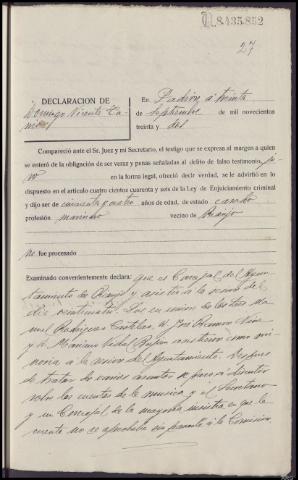 8.435.852
27
DECLARACION DE
Domingo Vicente Ca-
En Padrón, a treinta
de Septiembre de mil novecientos
treinta y dos
Compareció ante el Sr. Juez y mi Secretario, el testigo que se expresa al margen a quien
se enteró de la obligación de ser veraz y penas señaladas al delito de falso testimonio, ju-
ró en la forma legal, ofreció decir verdad, se le advirtió en lo
dispuesto en el artículo cuatro cientos cuarenta y seis de la Ley de Enjuiciamiento criminal
y dijo ser de cincuenta y cuatro años de edad, de estado casado
profesión marinero vecino de Rianjo
no fue procesado
Examinado convenientemente declara: que es Concejal del Ayun-
tamiento de Rianjo y asistió a la sesión del
día veintisiete.
nuel Rodríguez Castelao, D. José Ramón
y D. Mariano Vidal
noria a la sesión del Ayuntamiento. Después
de tratar de varios asuntos se pasó a discutir
sobre las cuentas de la música y el Secretario
y un Concejal de la mayoría insistía en que la
cuenta no se aprobaba sin pasarla a la Comisión